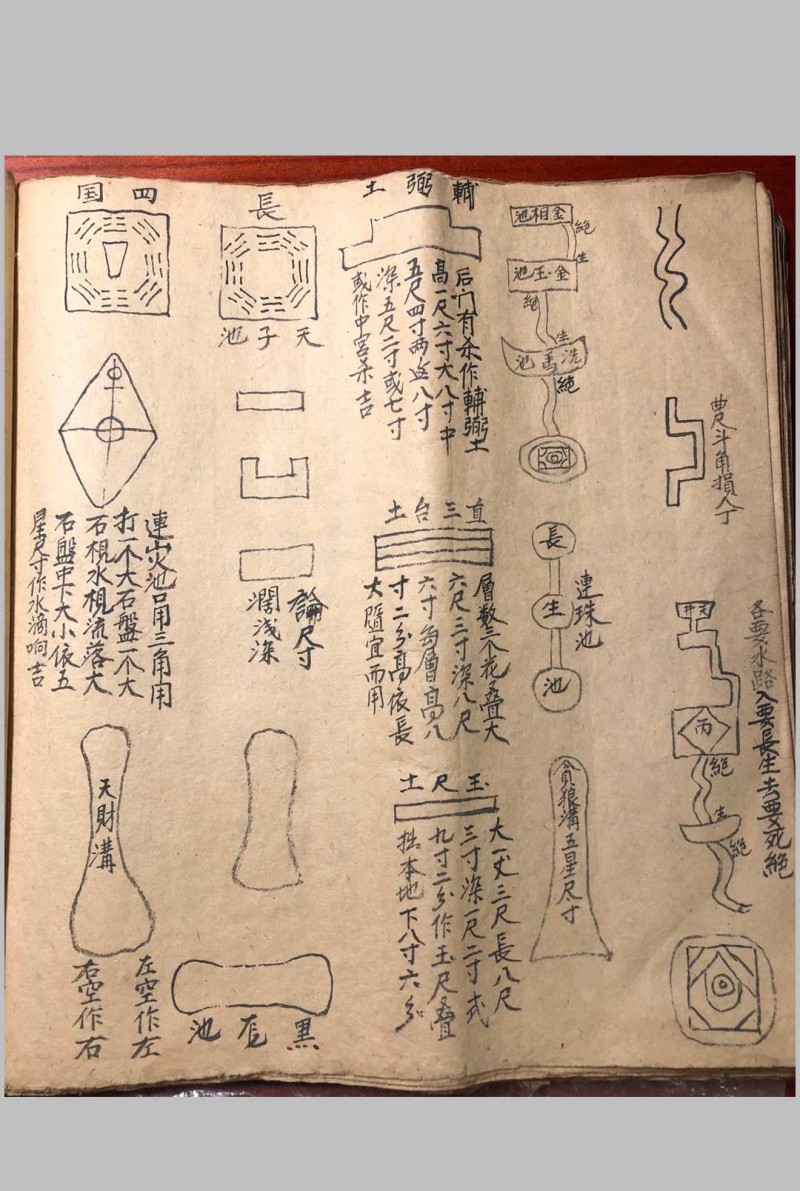 曲尺斗角損人丁
各要水路入要長生去要死絕
丙
絕
生
絕
金相池
絕
生
金玉池
絕
生
洗馬池
絕
長
生
池
連珠池
貪狼溝五星尺寸
輔弼土
后门有杀作輔弼土
高一尺六寸大八寸中
五尺四寸两边八寸
深五尺二寸或七寸
或作中宮杀吉
直三台土
層数三个花叠大
六尺三寸深八尺
六寸每層高八
寸二分高依長
大隨宜而用
玉尺土
大一丈三尺長八尺
三寸深一尺二寸式
九寸二分作玉尺叠
拙本地下八寸六分
長
天子池
論尺寸
濶浅深
黑 池
四国
連災池口用三角用
打一个大石盤一个大
石枧水枧流落大
石盤中下大小依五
星尺寸作水滴响吉
天財溝
左空作左
右空作右